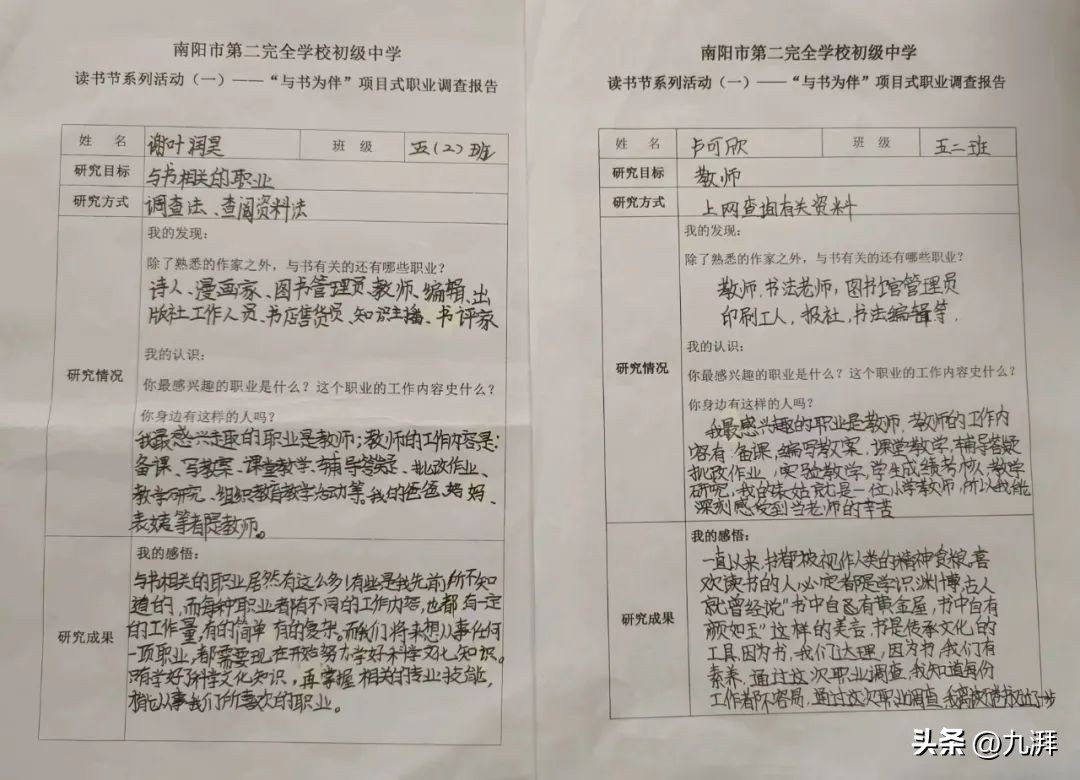 南阳市第二完全学校初级中学
读书节系列活动（一）——“与书为伴”项目式职业调查报告
姓 名 谢叶润昊 班 级 五(2)班
研究目标 与书相关的职业
研究方式 调查法、查阅资料法
研究情况
我的发现：
除了熟悉的作家之外，与书有关的还有哪些职业？
诗人、漫画家、图书管理员、教师、编辑、出
版社工作人员、书店售货员、知识主播、书评家
我的认识：
你最感兴趣的职业是什么？这个职业的工作内容史什么？
你身边有这样的人吗？
我最感兴趣的职业是教师；教师的工作内容是：
备课、写教案、课堂教学、辅导答疑、批改作业、
教学研究、组织教育教学活动等。我的爸爸、妈妈、
表姨等都是教师。
研究成果
我的感悟：
与书相关的职业居然有这么多！有些是我先前所不知
道的，而每种职业都有不同的工作内容，也都有一定
的工作量，有的简单有的复杂。而我们将来想从事任何
一项职业，都需要现在开始努力学好科学文化知识。
只有学好了科学文化知识，再掌握相关的专业技能，
才能从事我们所喜欢的职业。
南阳市第二完全学校初级中学
读书节系列活动（一）——“与书为伴”项目式职业调查报告
姓 名 卢可欣 班 级 五二班
研究目标 教师
研究方式 上网查询有关资料
研究情况
我的发现：
除了熟悉的作家之外，与书有关的还有哪些职业？
教师，书法老师，图书馆管理员
印刷工人，报社，书法编辑等，
我的认识：
你最感兴趣的职业是什么？这个职业的工作内容史什么？
你身边有这样的人吗？
我最感兴趣的职业是教师，教师的工作内
容有，备课，编写教案，课堂教学，辅导答疑
批改作业，实验教学，学生成绩考核，教学
研究，我的表姑就是一位小学教师，所以我能
深刻感受到当老师的辛苦
研究成果
我的感悟：
一直以来，书都被视作人类的精神食粮。喜
欢读书的人，必定都是学识渊博，古人
就曾经说“书中自有黄金屋，书中自有
颜如玉”这样的美言，书是传承文化的
工具，因为书，我们大理，因为书，我们有
素养，通过这次职业调查，我知道每份
工作都不容易，通过这次职业调查，我离
头条 @九湃